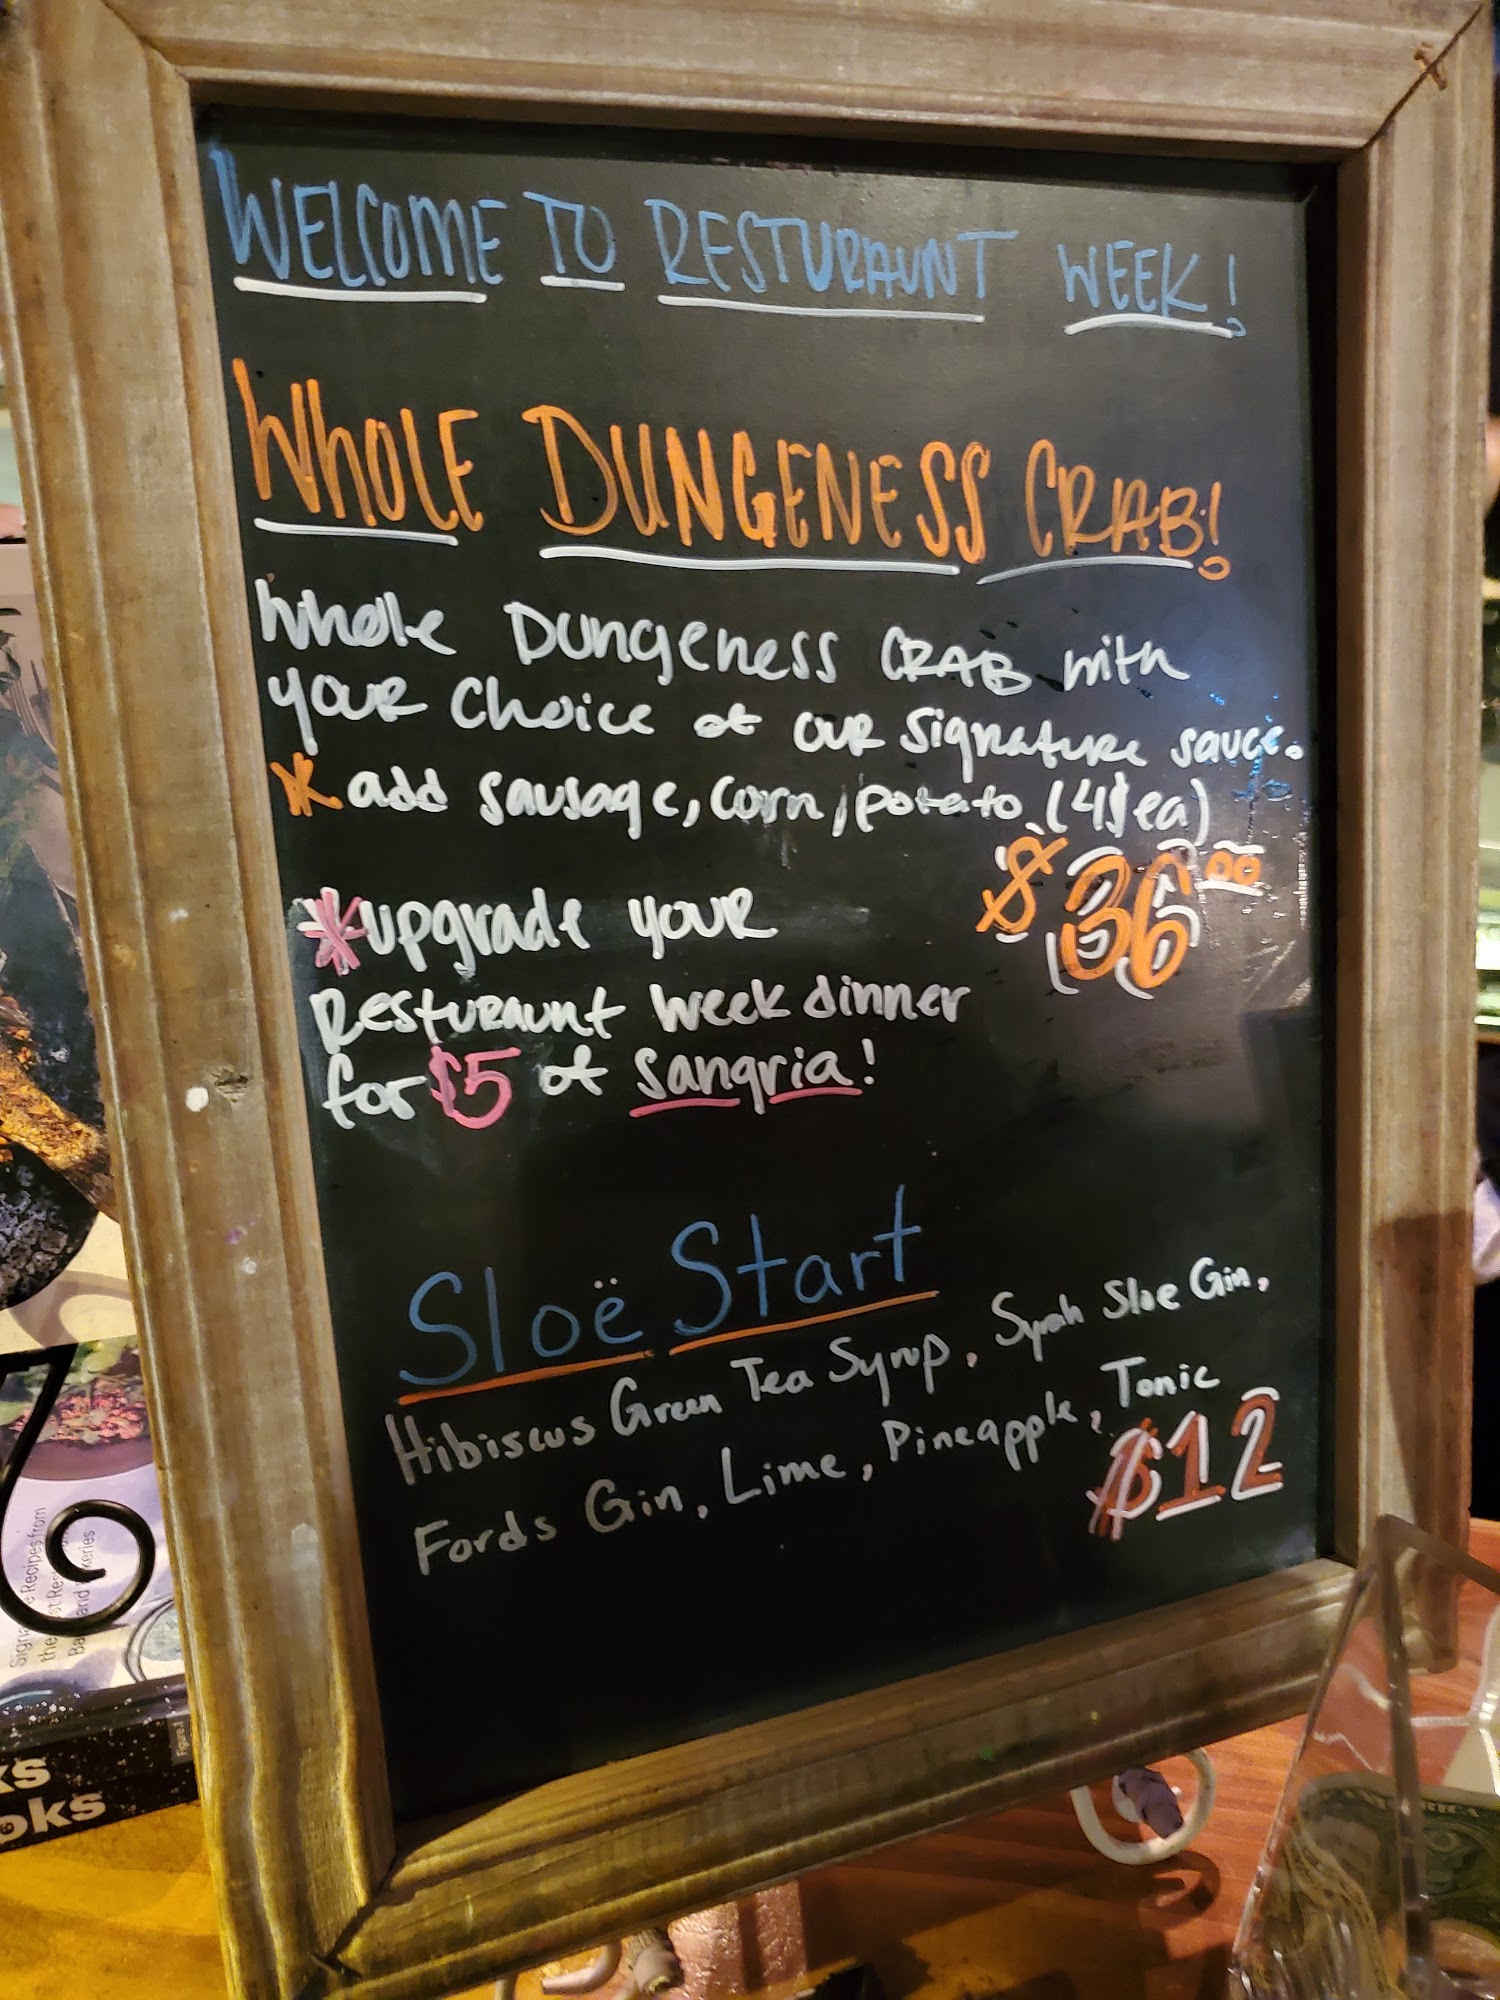 WELCOME TO RESTURAUNT WEEK!
WHOLE DUNGENESS CRAB!
Whole Dungeness CRAB with
your choice of our signature sauce.
* add sausage, corn, potato (4$ ea)
$36.00
*upgrade your
Resturaunt week dinner
for $5 of sangria!
Sloë Start
Hibiscus Green Tea Syrup, Syrah Sloe Gin,
Fords Gin, Lime, Pineapple, Tonic
$12
Recipes from
the
and
ks
oks
AMERICA